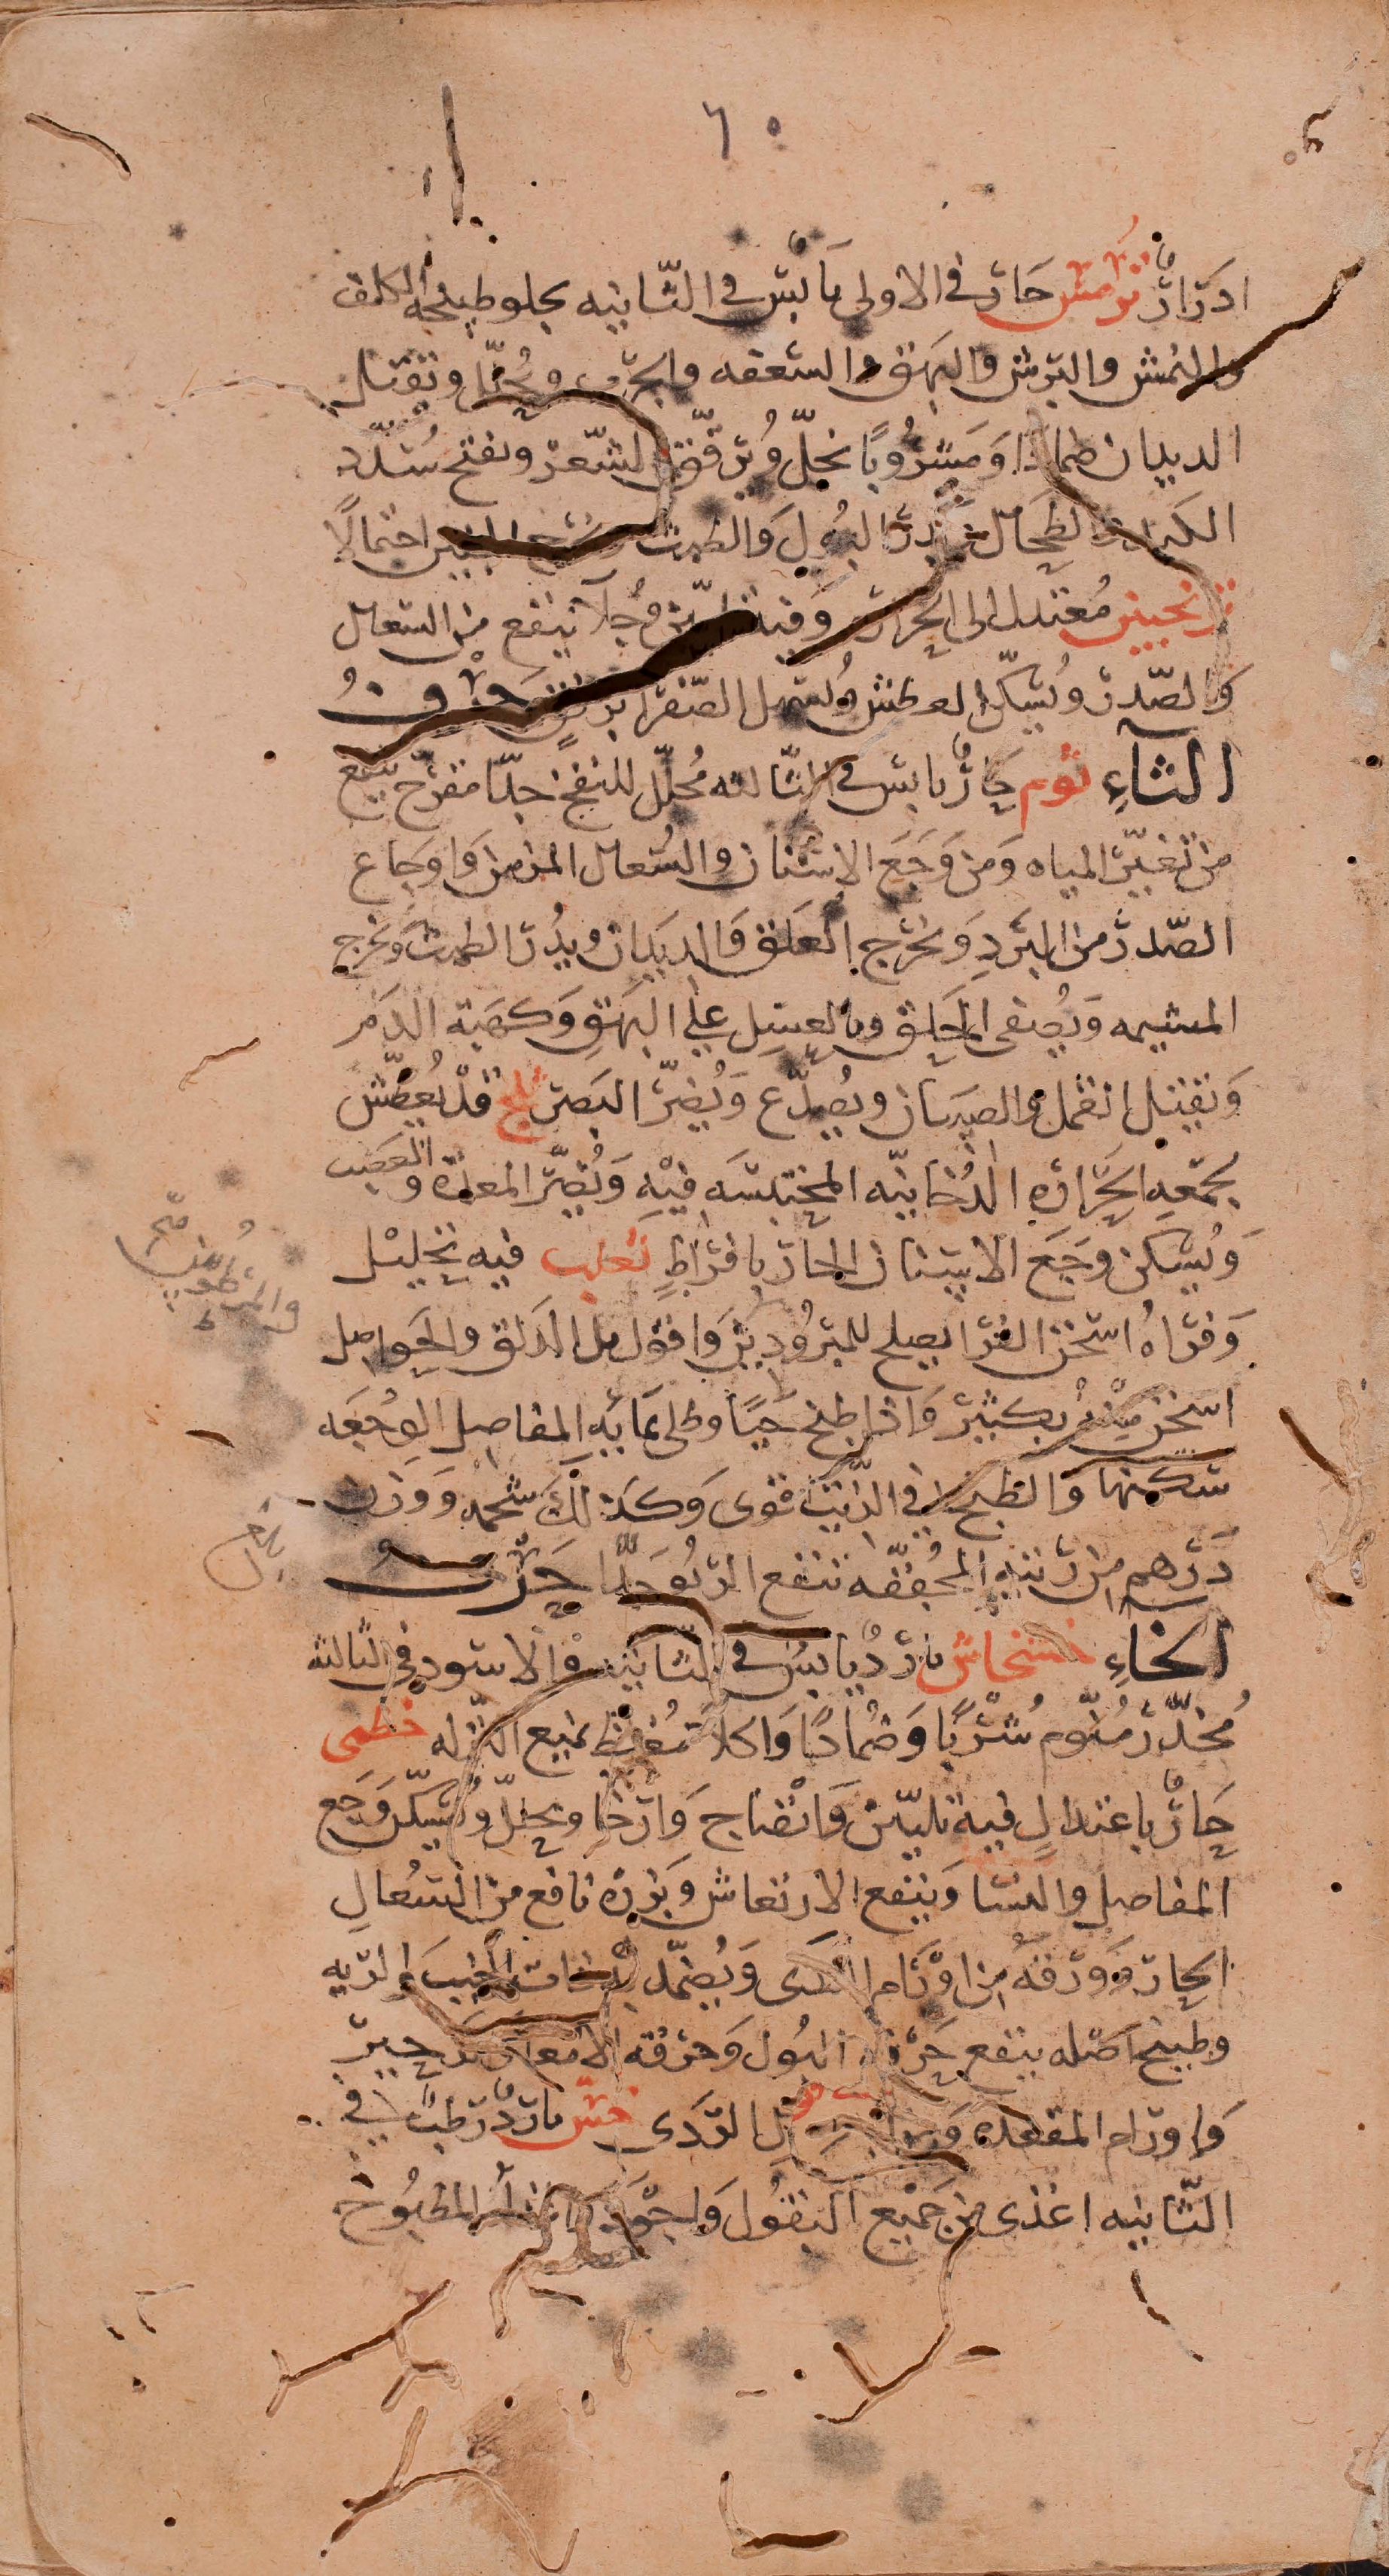 ٦٠
ادرار ترمس حار في الاولى يابس في الثانيه يجلو طبيخه الكلف
والنمش والبرش والبهق والسعفه والجرب ويحل وتقتل
الديدان ضمادا ومشروبا بخل ويرقق الشعر وتفتح سدد
الكبد والطحال ويدر البول والطمث ويخرج الجنين احتمالا
ترنجبين معتدل الى الحراره وفيه تليين وجلا ينفع من السعال
والصدر ويسكن العطش ويسهل الصفرا برفق حرف
الثاء ثوم حار يابس في الثالثه محلل للنفخ جدا مقرح ينفع
من تغير المياه ومن وجع الاسنان والسعال المزمن واوجاع
الصدر من البرد ويخرج العلق والديدان ويدر الطمث ويخرج
المشيمه ويصفى الحلق وبالعسل على البهق وكهبة الدم
وتقتل القمل والصيبان ويصدع ويضر البصر ثلج قد يعطش
بجمعه الحراره الدخانيه المحتبسه فيه ويضر المعده والعصب
ويسكن وجع الاسنان الحار بافراط ثعلب فيه تحليل
وفراه اسخن الفرا يصلح للمبرودين واقول بل الدلق والحواصل
اسخن منه بكثير واذا طبخ حيا وطلى بمائه المفاصل الوجعه
سكنها والطبخ في الزيت قوى وكذلك شحمه ووزن
درهم من رئته المجففه تنفع الربو جدا حرف
الخاء خشخاش بارد يابس في الثانيه والاسود في الثالثه
مخدر منوم شربا وضمادا واكلا مغلظ يمنع النزله خطمى
حار باعتدال فيه تليين وانضاج وارخا ويحلل ويسكن وجع
المفاصل والنسا وينفع الارتعاش وبزره نافع من السعال
الحار وورقه من اورام الثدى ويضمد به ذات الجنب والريه
وطبيخ اصله ينفع حرقة البول وحرقه الامعا والزحير
واورام المقعده الردى خس بارد رطب في
الثانيه اغذى من جميع البقول واجود المطبوخ
والمرطوبين صح